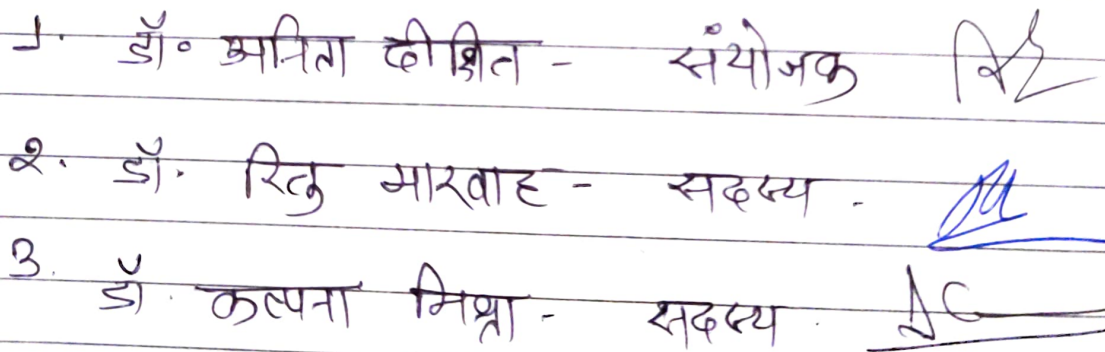 1. डॉ॰ अनिता दीक्षित - संयोजक
२. डॉ. रितु मारवाह - सदस्य .
3. डॉ. कल्पना मिश्रा - सदस्य .